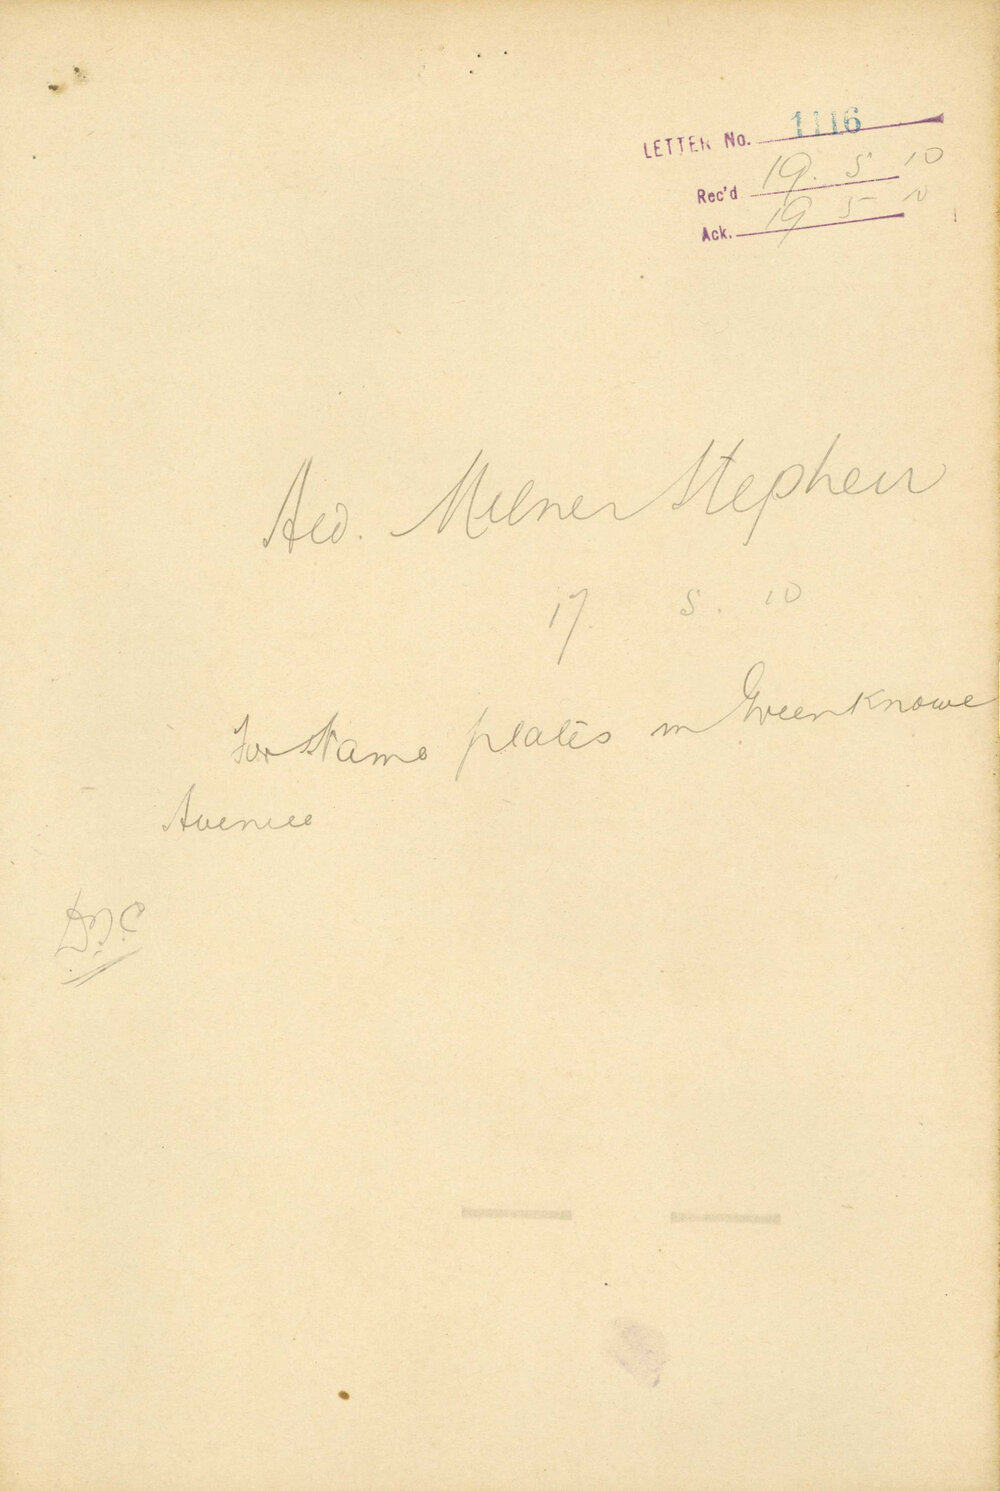 LETTER No. 1116
Rec'd 19. 5 10
Ack. 19 5 10
Ald. Milner Stephen
17. 5. 10
For Name plates in Greenknowe
Avenue